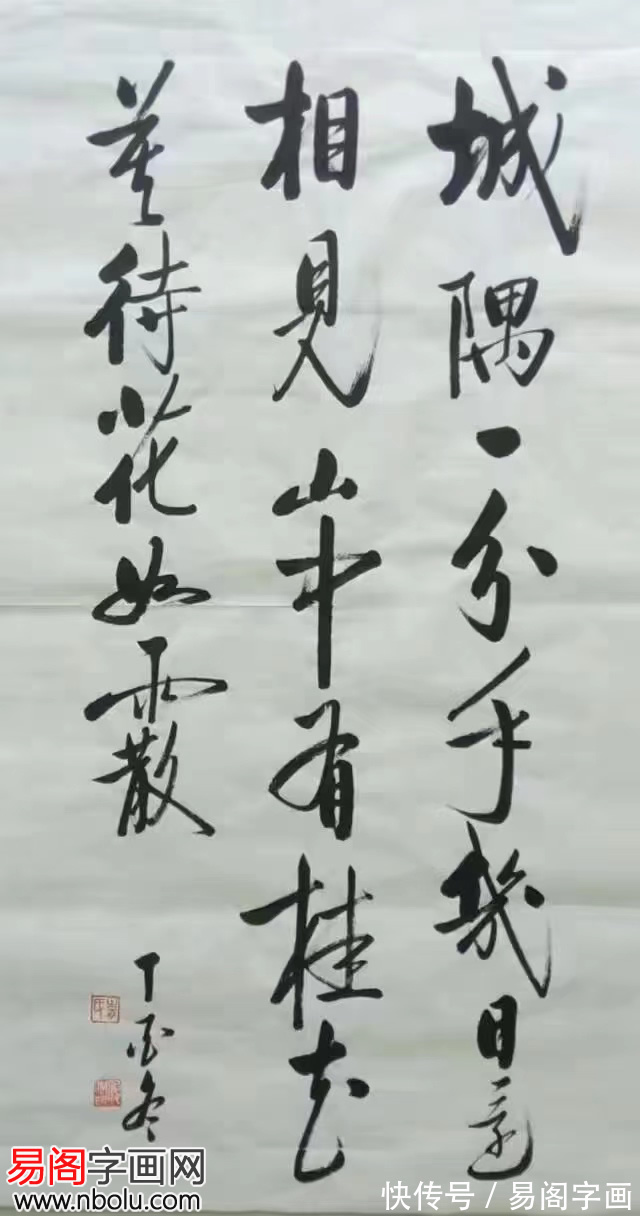 城隅一分手幾日還
相見山中有桂花
莫待花如霰
丁酉冬
易阁字画网
www.nbolu.com
快传号 / 易阁字画